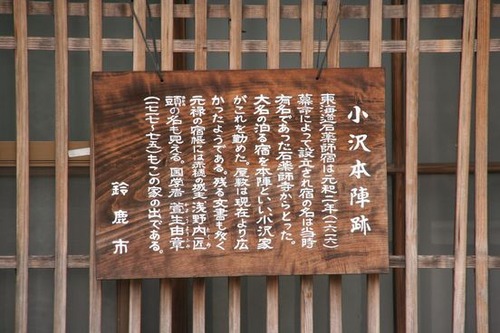 小沢本陣跡
東海道石薬師宿は元和二年(一六一六)
幕命によって設立され宿の名は当時
有名であった石薬師寺からとった。
大名の泊る宿を本陣といい小沢家
がこれを勤めた。屋敷は現在より広
かったようである。残る文書も数多く
元禄の宿帳には赤穂の城主浅野内匠
頭の名も見える。国学者 萱生由章
(一七一七~七五)もこの家の出である。
鈴鹿市